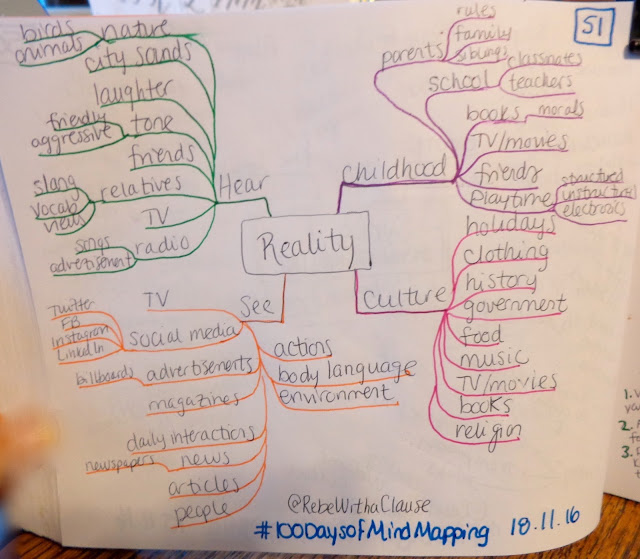 51
Reality
Hear
nature
birds
animals
city sands
laughter
tone
friendly
aggressive
friends
relatives
slang
vocab
views
TV
radio
songs
advertisement
Childhood
parents
rules
family
siblings
school
classmates
teachers
books
morals
TV/movies
friends
Playtime
structured
instructured
electronics
Culture
holidays
clothing
history
government
food
music
TV/movies
books
religion
See
TV
social media
Twitter
FB
Instagram
LinkedIn
advertisements
billboards
magazines
daily interactions
news
newspapers
articles
people
actions
body language
environment
@RebeWithaClause
#100DaysofMindMapping 18.11.16
1.
2.
3.